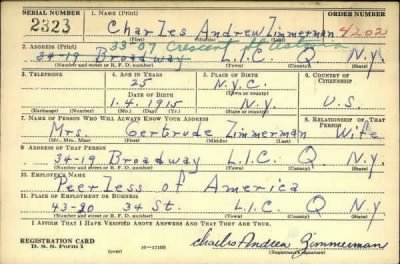 SERIAL NUMBER 1. NAME (Print) ORDER NUMBER
2323 Charles Andrew Zimmerman 4202
(First) (Middle) (Last)
2. ADDRESS (Print) 33-07 Crescent St Astoria
34-19 Broadway L.I.C. Q N.Y.
(Number and street or R. F. D. number) (Town) (County) (State)
3. TELEPHONE 4. AGE IN YEARS 5. PLACE OF BIRTH 6. COUNTRY OF CITIZENSHIP
25 N.Y.C.
DATE OF BIRTH (Town or county)
1. 4. 1915 N.Y. U.S.
(Exchange) (Number) (Mo.) (Day) (Yr.) (State or country)
7. NAME OF PERSON WHO WILL ALWAYS KNOW YOUR ADDRESS 8. RELATIONSHIP OF THAT PERSON
Mrs. Gertrude Zimmerman Wife
(Mr., Mrs., Miss) (First) (Middle) (Last)
9. ADDRESS OF THAT PERSON
34-19 Broadway L.I.C. Q N.Y.
(Number and street or R. F. D. number) (Town) (County) (State)
10. EMPLOYER'S NAME
Peerless of America
11. PLACE OF EMPLOYMENT OR BUSINESS
43-20 34 St. L.I.C. Q N.Y.
(Number and street or R. F. D. number) (Town) (County) (State)
I AFFIRM THAT I HAVE VERIFIED ABOVE ANSWERS AND THAT THEY ARE TRUE.
REGISTRATION CARD
D. S. S. Form 1 (over) 16—17105 Charles Andrew Zimmerman
(Registrant's signature)